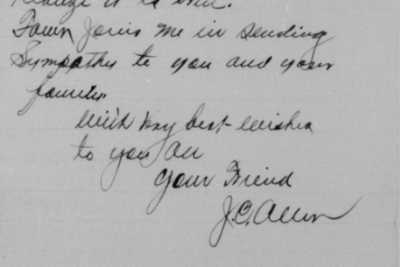 realize it is over.
Fawn joins me in sending
Sympathy to you and your
family.
With my best wishes
to you all
your Friend
J.C. Allen